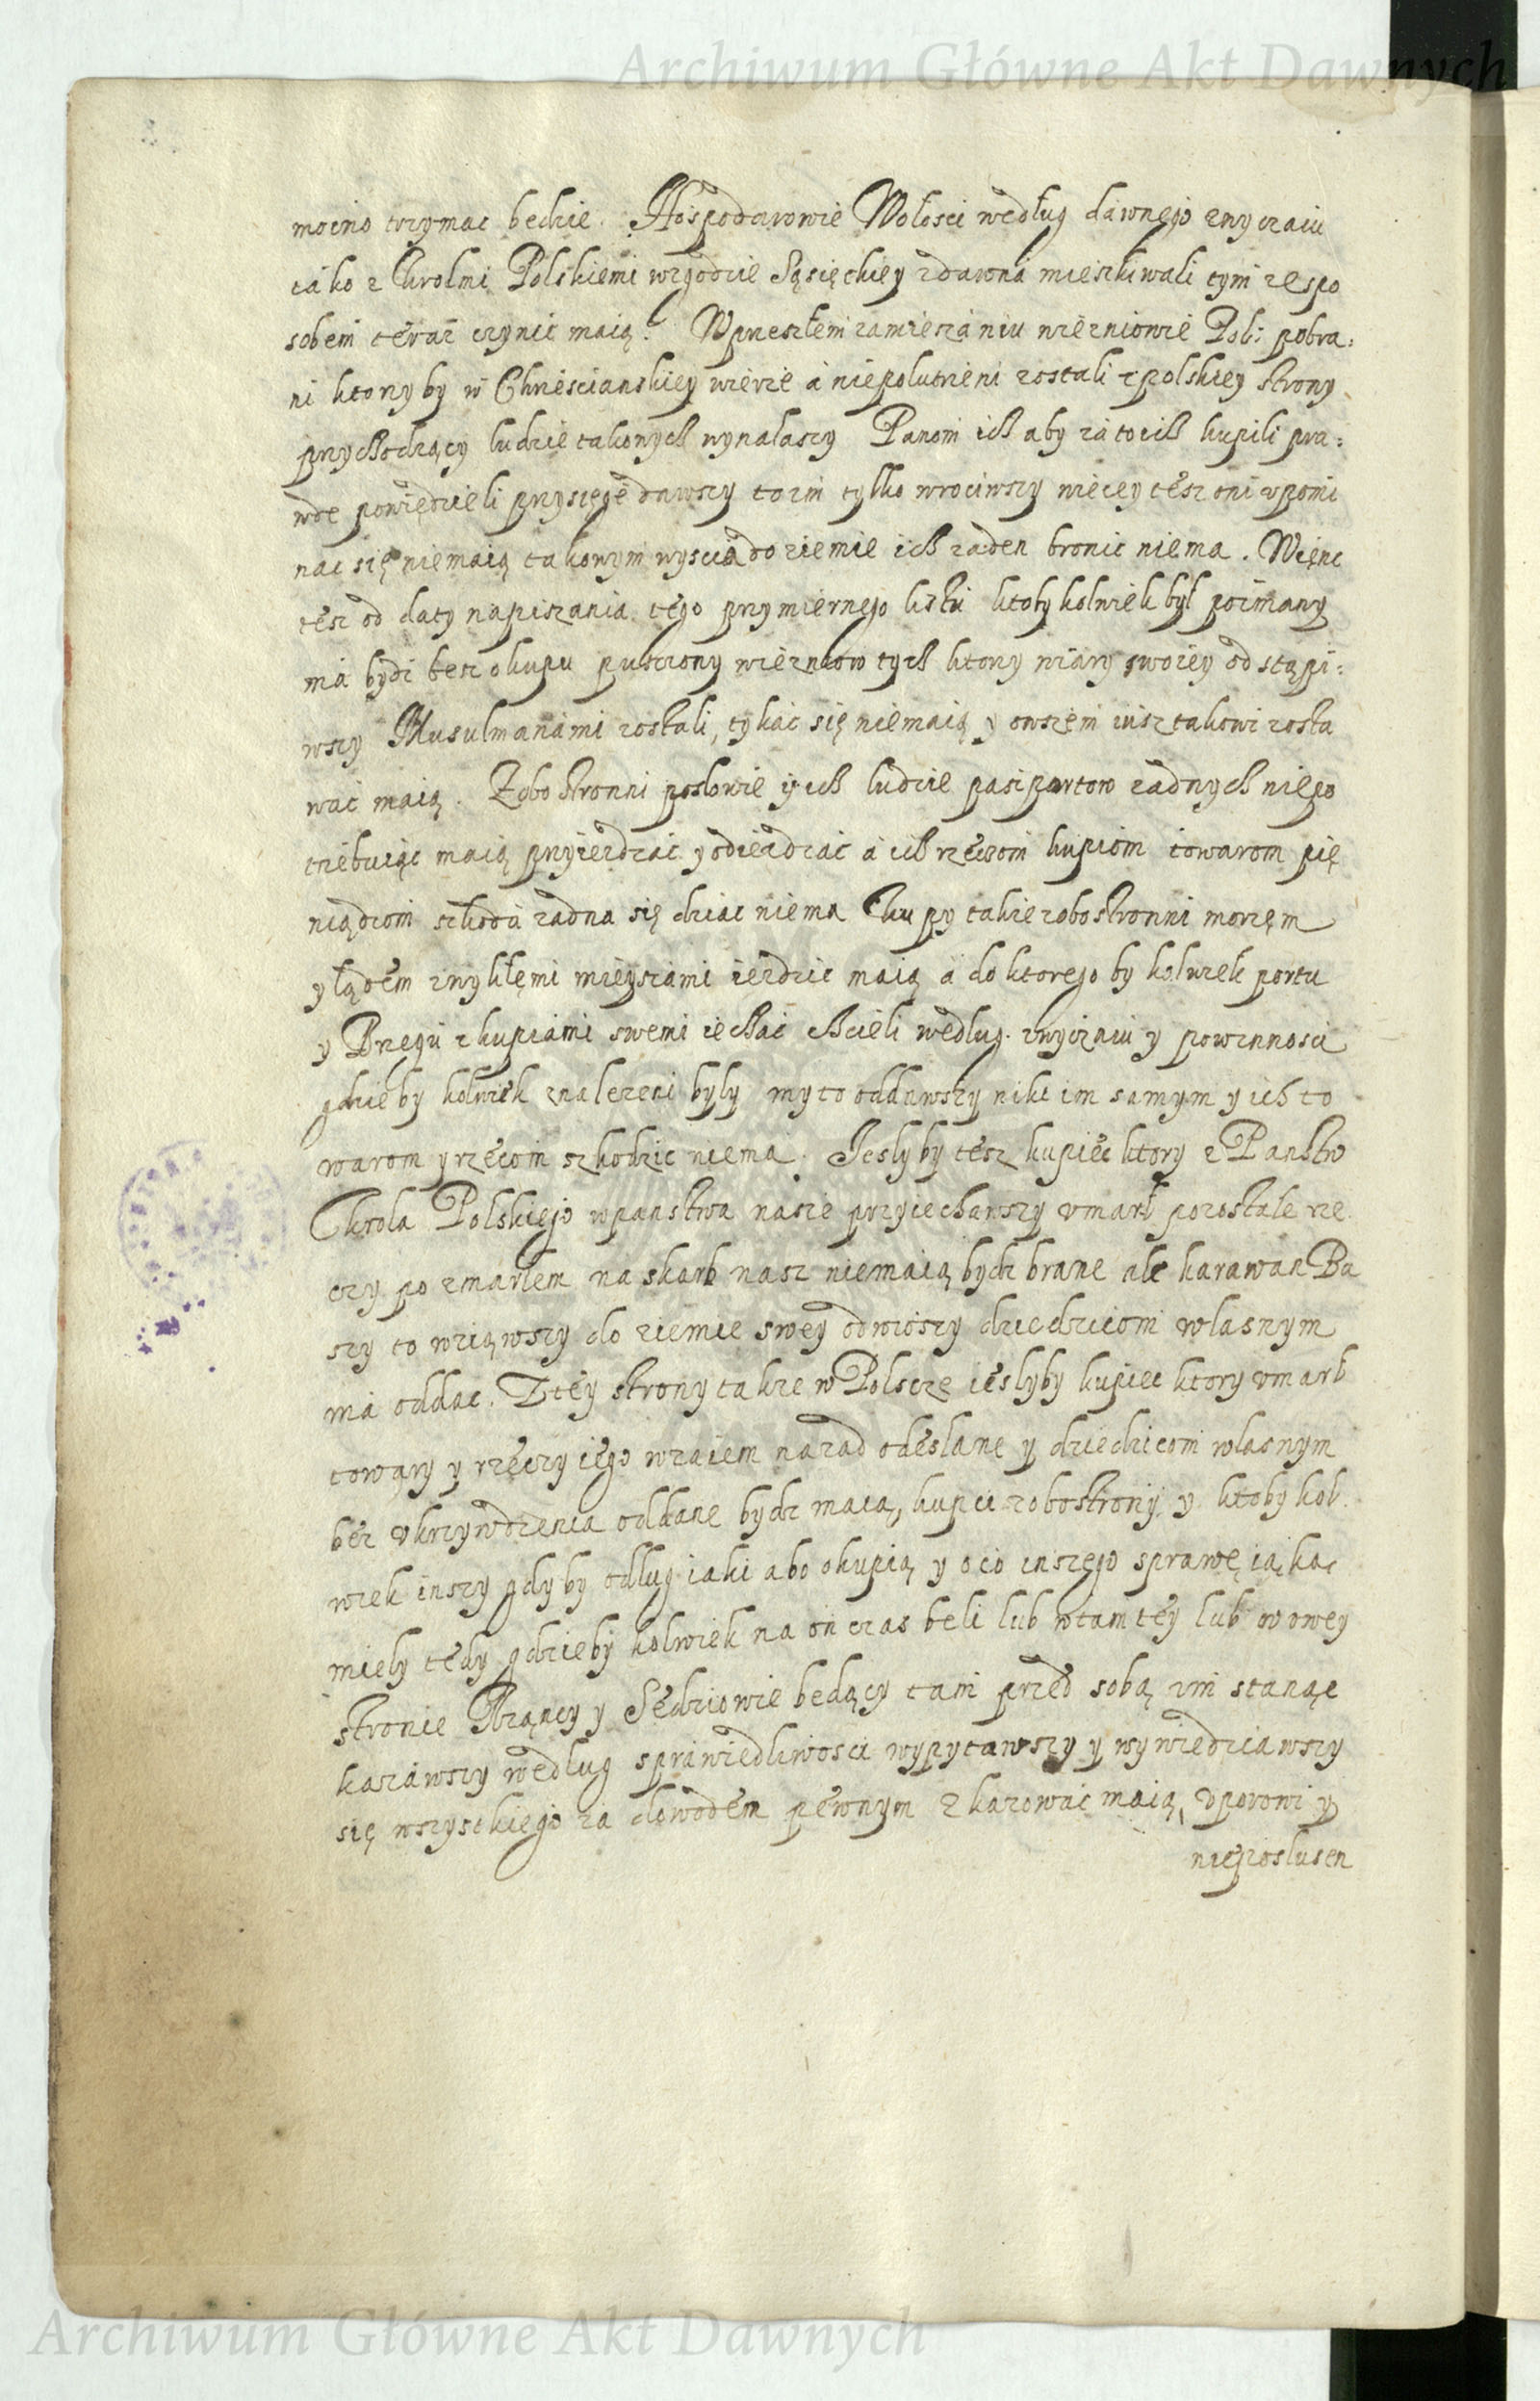 Archiwum Główne Akt Dawnych
mocno trzymac bedzie. Hospodarowie Wołosci według dawnego zwyczaiu
iako z Krolmi Polskiemi wzgodzie Sąsięckiey zdawna mieszkiwali tym ze spo
sobem teraz czynic maią. Wprzeszłem zamieszaniu więzniowie Pol: pobra:
ni ktorzy by w Chrzescianskiey wierze a niepoluterni zostali z polskiey strony
przychodzący ludzie takowych wynalaszy Panom ich aby za to ich kupili pra:
wde powiedzieli przysięge dawszy to im tylko wrociwszy więcey tesz oni vpomi
nac się niemaią takowym wyscia do ziemie ich zaden bronic niema. Więnc
tesz od daty napiszania tego przymiernego listu ktotykolwiek był poimany
ma bydz besz okupu puszczony więzniow tych ktorzy wiary swoiey odstąpi:
wszy Musulmanami zostali, tykac się niemaią y owszem iusz takowi zosta
wac maią. Zobostronni posłowie y ich ludzie paszportow zadnych niepo
trzebuiąc maią przyiezdzac y odiezdzac a ich rzeczom kupiom towarom pię
niądzom szkoda zadna się dziac niema Kupcy takie zobostronni morzem
y lądem zwykłemi mieyscami iezdzic maią a do ktorego by kolwiek portu
y Brzegu z kupiami swemi iechac chcieli według zwyczaiu y powinnosci
gdzie by kolwiek znalezeni byly myto oddawszy nikt im samym y ich to
warom y rzecom szkodzic niema. Jesly by tesz kupiec ktory z Panstw
Krola Polskiego wpanstwa nasze przyiechawszy vmarł pozostałe rze
czy po zmarłem na skarb nasz niemaią bydz brane ale karawan Ba
szy to wziąwszy do ziemie swey odniozszy dziedzicom własnym
ma oddac. Ztey strony takze w Polscze iesłyby kupiec ktory vmarł
towary y rzeczy iego wzaiem nazad odesłane y dziedzicom własnym
bez vkrzywdzenia oddane bydz maią, kupci zobostrony y ktoby kol
wiek inszy gdy by odług iaki abo okupią y o co inszego sprawę iąkąc
miely tedy gdzieby kolwiek na on czas beli lub wtamtey lub wowey
stronie Rządcy y Sędziowie będący tam przed sobą im stanąc
kazawszy według sprawiedliwosci wypytawszy y wywiedziawszy
się wszystkiego za dowodem pewnym zkazowac maią, vporowi y
nieposłusen
Archiwum Główne Akt Dawnych